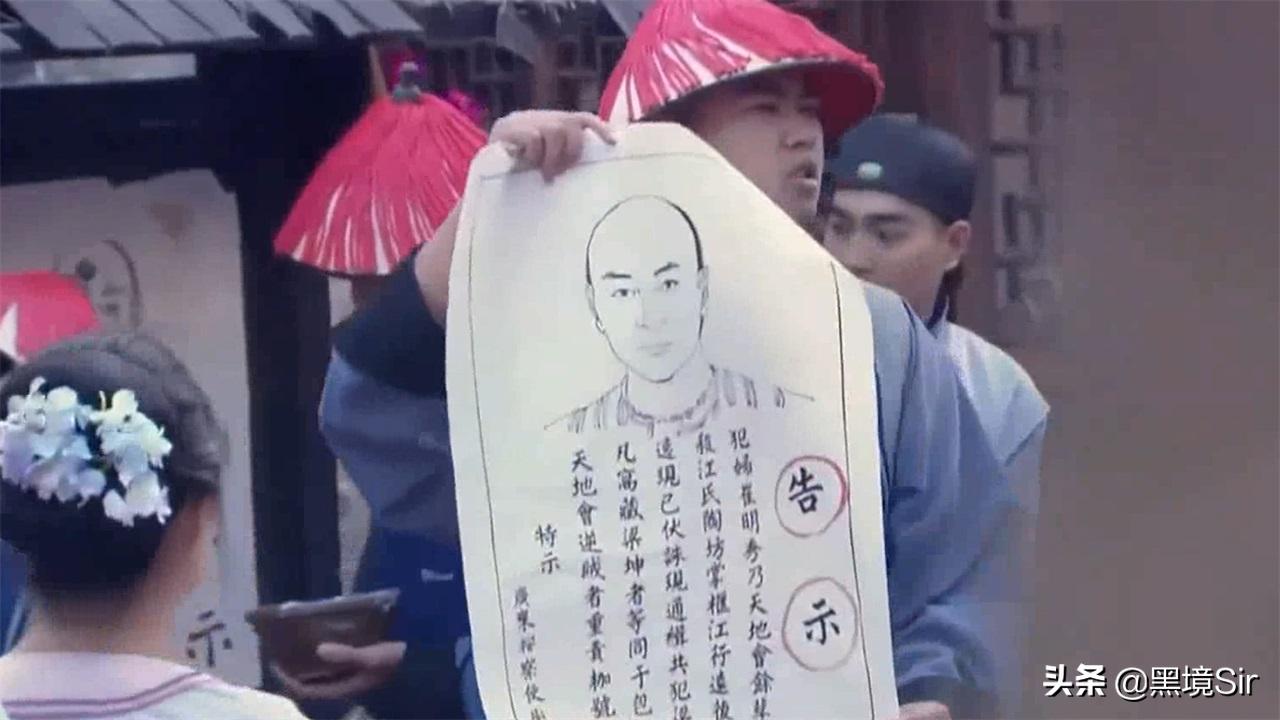 告示
犯婦崔明秀乃天地會餘
殺江氏陶坊掌櫃江行遠後
現已伏誅現通緝共犯梁
凡窩藏梁坤者等同于包
天地會逆賊者重責枷號
特示
廣東按察使
示
头条 @黑境Sir